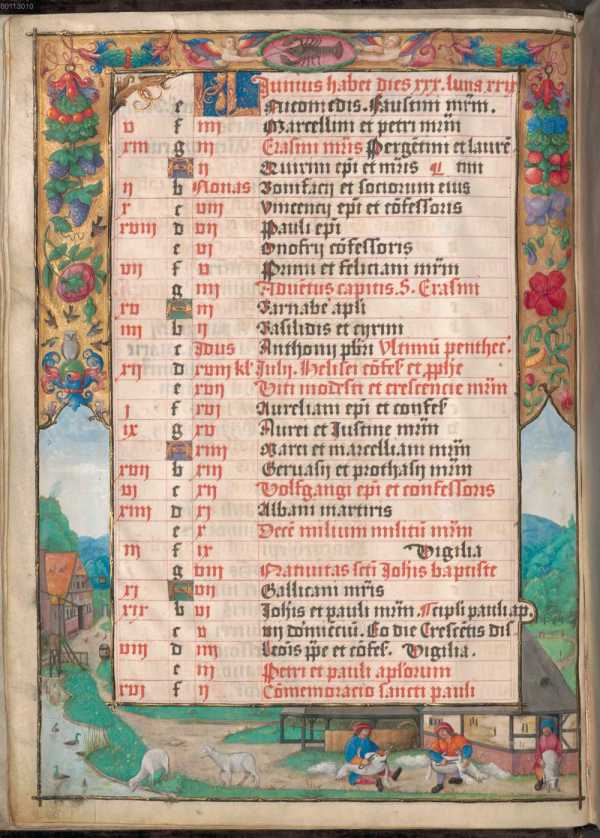 00113010
Junius habet dies xxx. luna xxix
e Nicomedis. Faustini mr̄m.
v f iiii Marcellini et petri mr̄m
xiii g iii Erasmi mr̄is Pergētini et laurē
ii Quirini ep̄i et mr̄is
ii b Nonas Bonifacij et sociorum eius
x c viii Vincencij ep̄i et cōfessoris
xviii d vii Pauli ep̄i
e vi Onofrij cōfessoris
vii f v Primi et feliciani mr̄m
g iiii Adventus capitis. S. Erasmi
xv iii Barnabe apl̄i
iiii b ii Basilidis et cyrini
c Idus Anthonij pb̄ri Vltimū penthec.
xii d xviii kl̄ Julij. Helisei cōfes et p̄p̄he
e xvii Viti modesti et crescencie mr̄m
i f xvi Aureliani ep̄i et confes
ix g xv Aurei et Justine mr̄m
xiiii Marci et marcelliani mr̄m
xvii b xiii Gervasij et prothasij mr̄m
vi c xii Volfgangi ep̄i et confessoris
xiiii d xi Albani martiris
e x Decē milium militū mr̄m
iii f ix Vigilia
g viii Nativitas sc̄ti Joh̄is baptiste
xi vii Gallicani mr̄is
xix b vi Joh̄is et pauli mr̄m. pauli ap.
c v vii dormiēciū. Eo die Crescētis dis.
viii d iiii Leōis p̄pe et cōfes. Vigilia.
e iii Petri et pauli apl̄orum
xvi f ii Cōmemoracio sancti pauli